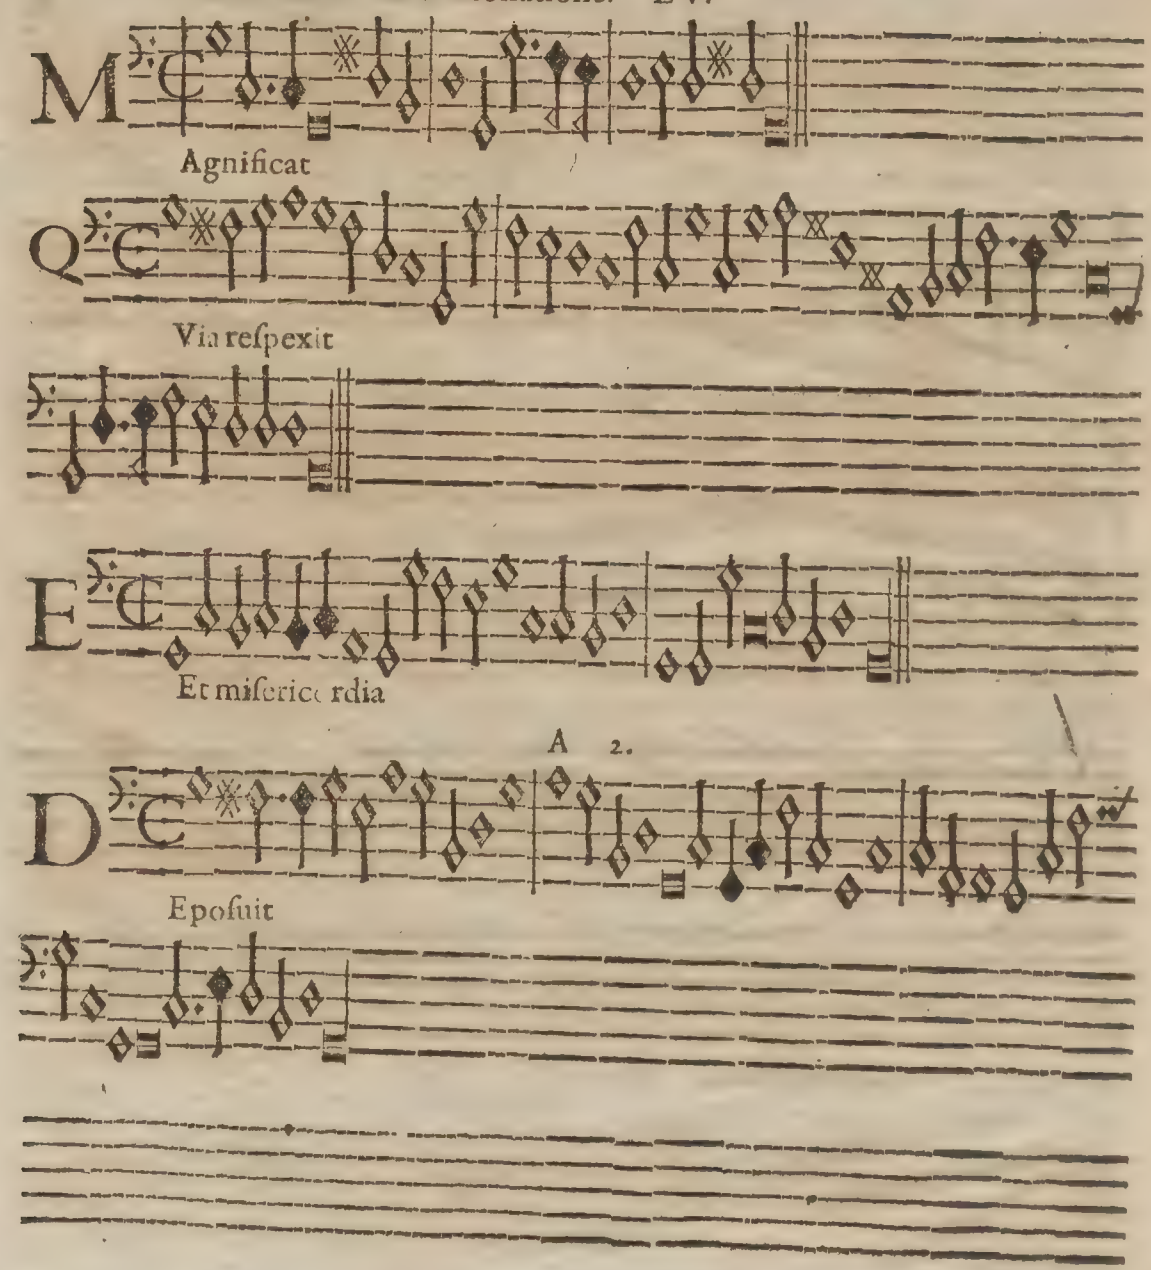 M
Agnificat
Q
Via reſpexit
E
Et miſericordia
A 2.
D
Epoſuit